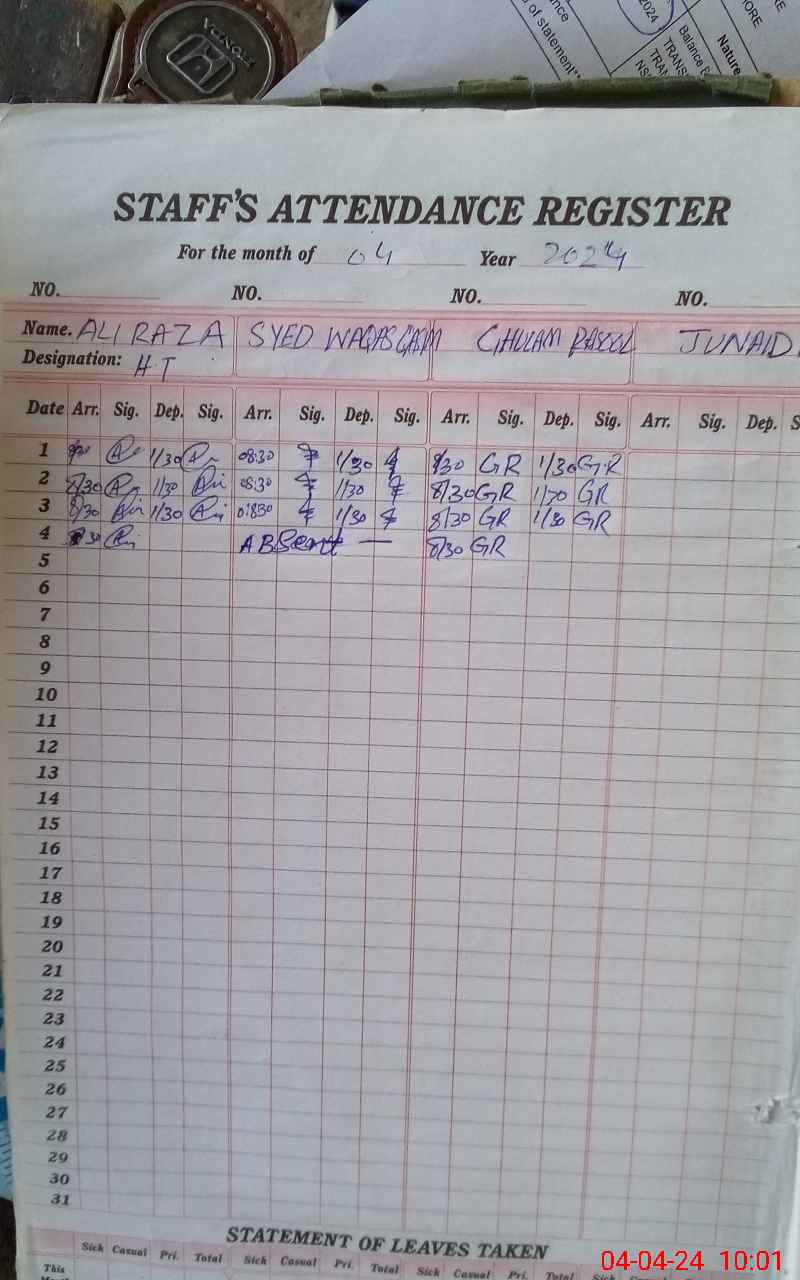 HONDA
2024
ORE
ance
of statement"
Balance B
Nature
TRAN
TRANS
NS
STAFF'S ATTENDANCE REGISTER
For the month of 04 Year 2024
NO. NO. NO. NO.
Name. ALI RAZA SYED WAQAS GHULAM RASOOL JUNAID
Designation: H.T
Date Arr. Sig. Dep. Sig. Arr. Sig. Dep. Sig. Arr. Sig. Dep. Sig. Arr. Sig. Dep. S
1 1/30 08:30 1/30 8/30 GR 1/30 GR
2 8/30 1/30 08:30 1/30 8/30 GR 1/30 GR
3 8/30 1/30 0:830 1/30 8/30 GR 1/30 GR
4 8/30 ABSent — 8/30 GR
5
6
7
8
9
10
11
12
13
14
15
16
17
18
19
20
21
22
23
24
25
26
27
28
29
30
31
STATEMENT OF LEAVES TAKEN
Sick Casual Pri. Total Sick Casual Pri. Total Sick Casual Pri. Total Sick
This
04-04-24 10:01